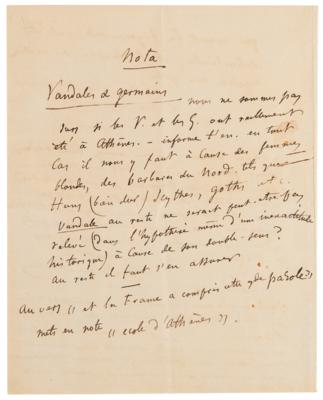 Nota
Vandales & germains nous ne sommes pas
surs si les V. et les G. ont réellement
été à Athènes. - informe t'en. en tout
cas il nous y faut à Cause des femmes
blondes, des barbares du Nord. tels que
Huns (bien dur) Scythes, Goths etc.
Vandale au reste ne serait peut-être pas
relevé (dans l'hypothèse même d'une inexactitude
historique) à Cause de son double-sens?
au reste il faut s'en assurer
Au vers « et la France a compris cette parole »
mets en note « ecole d'Athènes ».